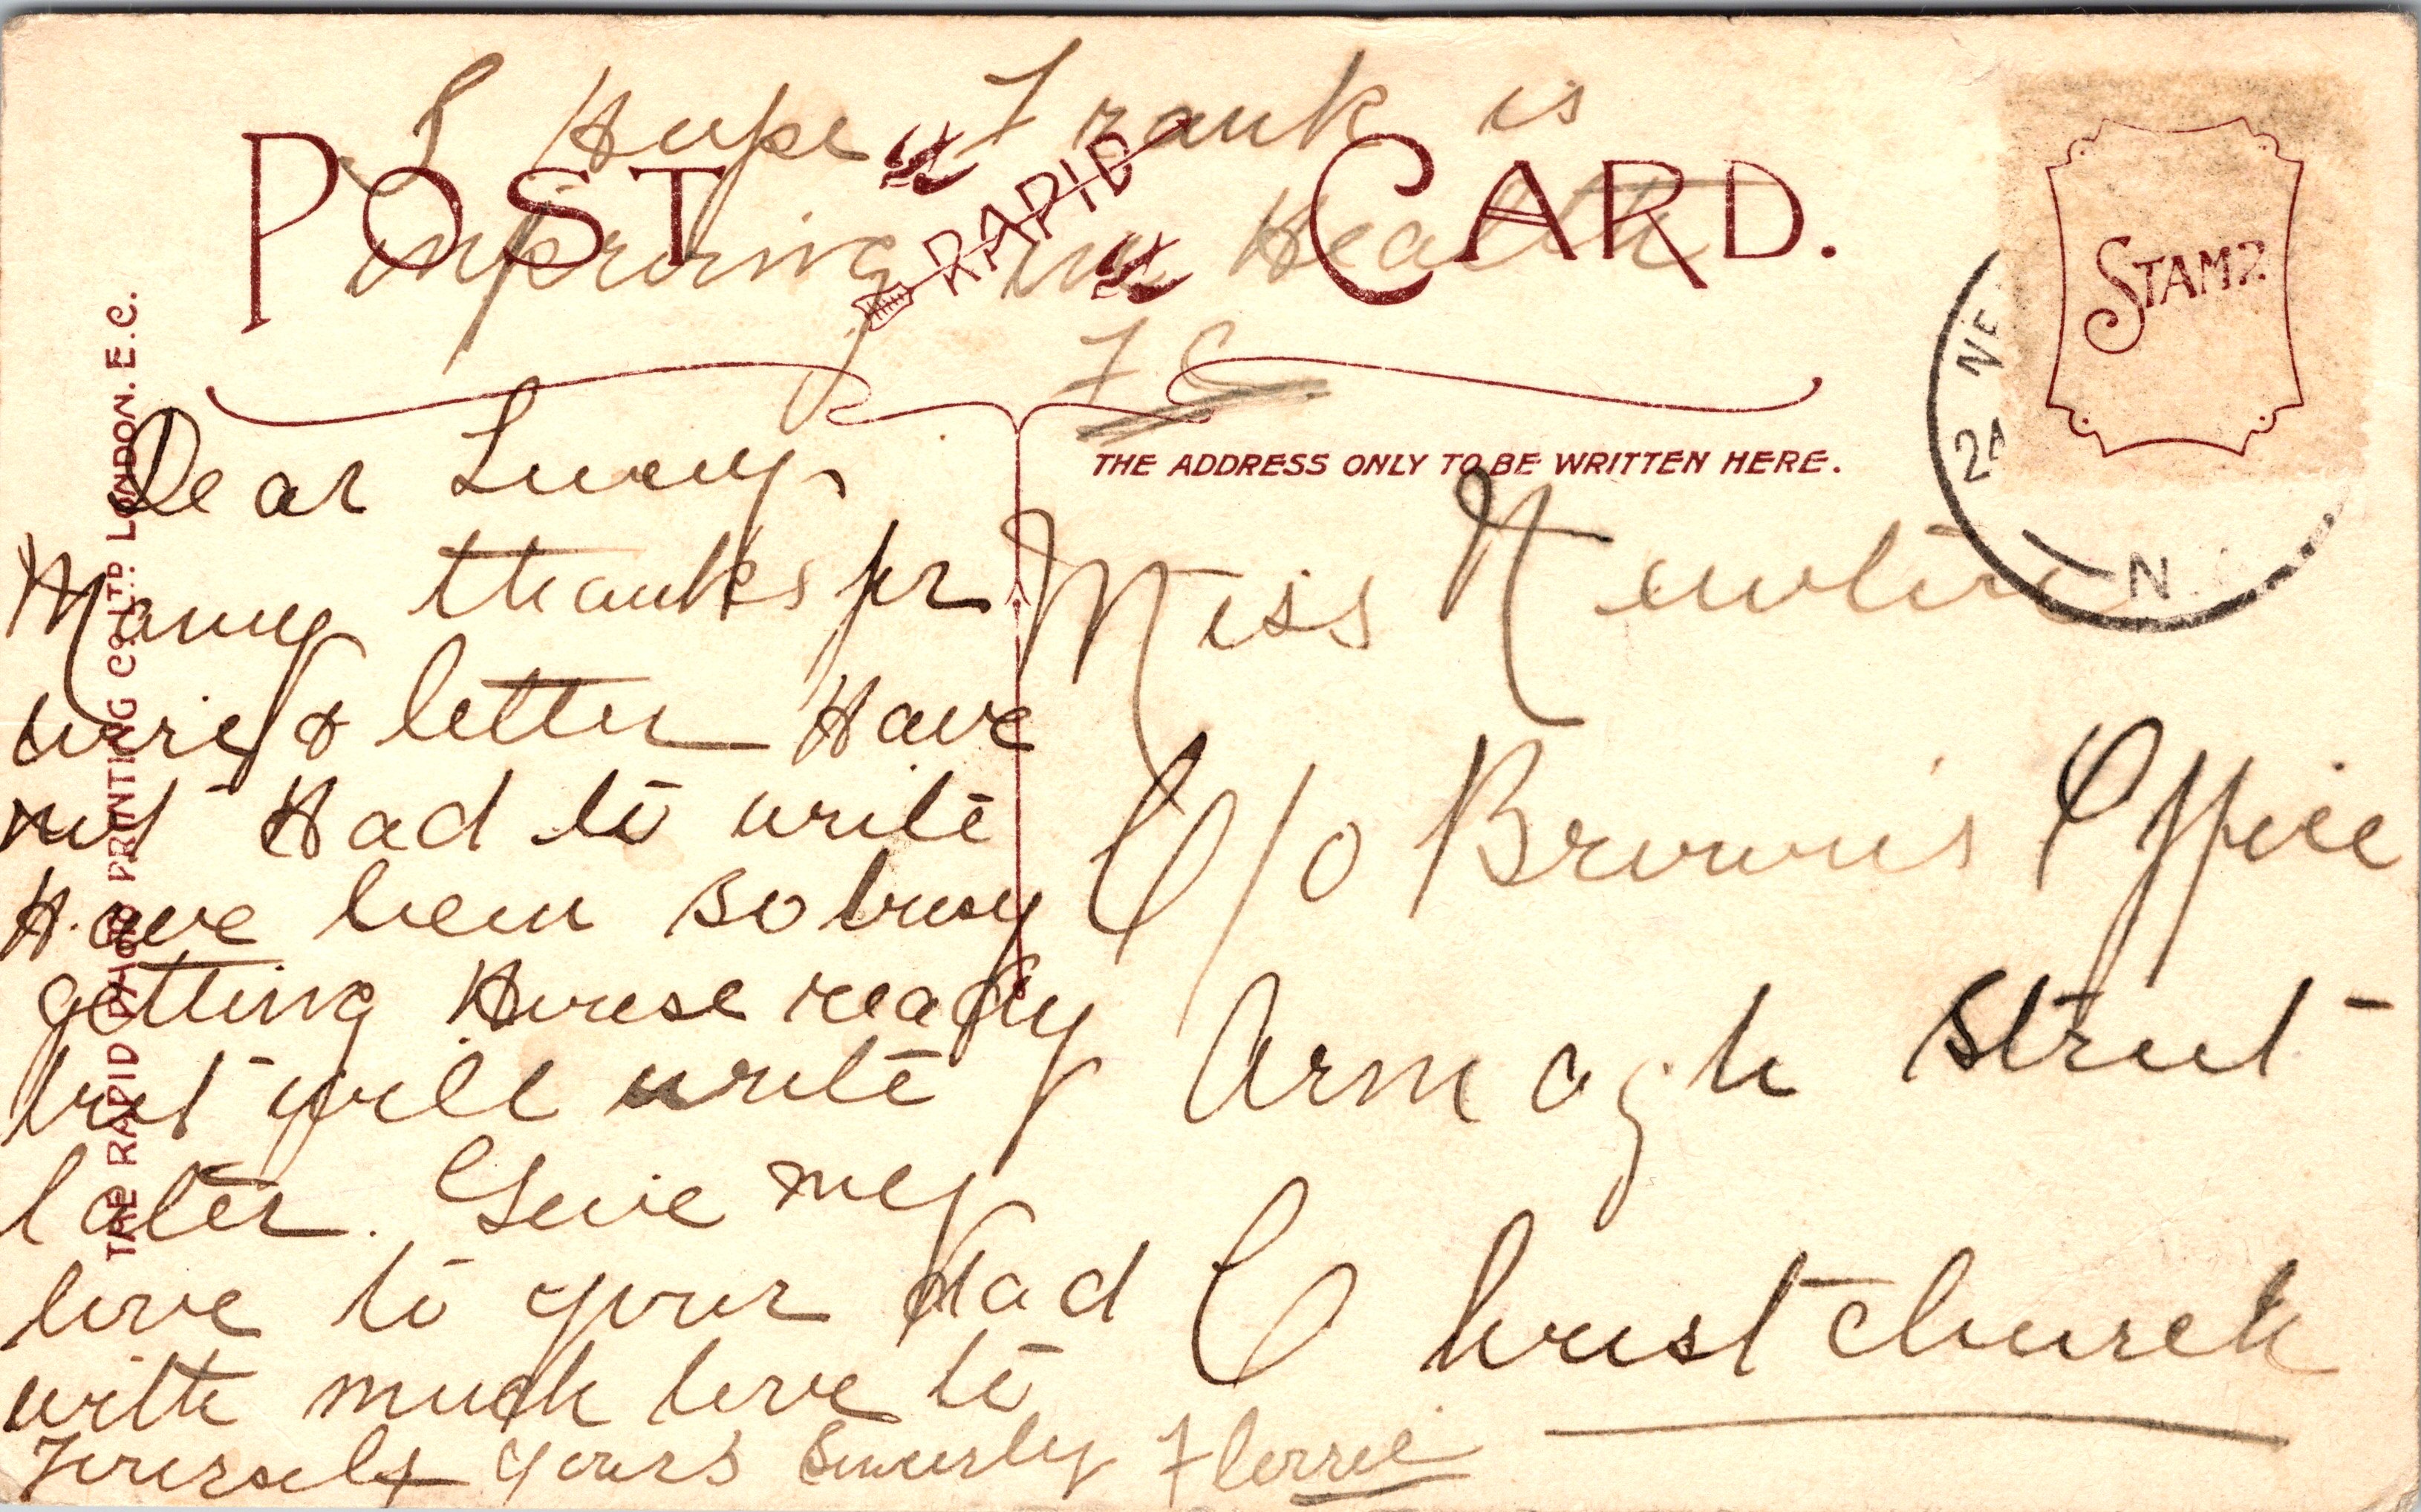 I Hope Frank is
improving in Health
F C
POST CARD.
RAPID
STAMP.
THE ADDRESS ONLY TO BE WRITTEN HERE.
THE RAPID PHOTO PRINTING Co LTD LONDON. E.C.
Dear
Many thanks for
wire & letter Have
not Had to write
Have been so busy
getting House ready
but will write
later. Give my
love to your dad
with much love to
Yourself yours Sincerly Florrie
Miss
C/o Brown's Office
Armagh Street
Christchurch
N